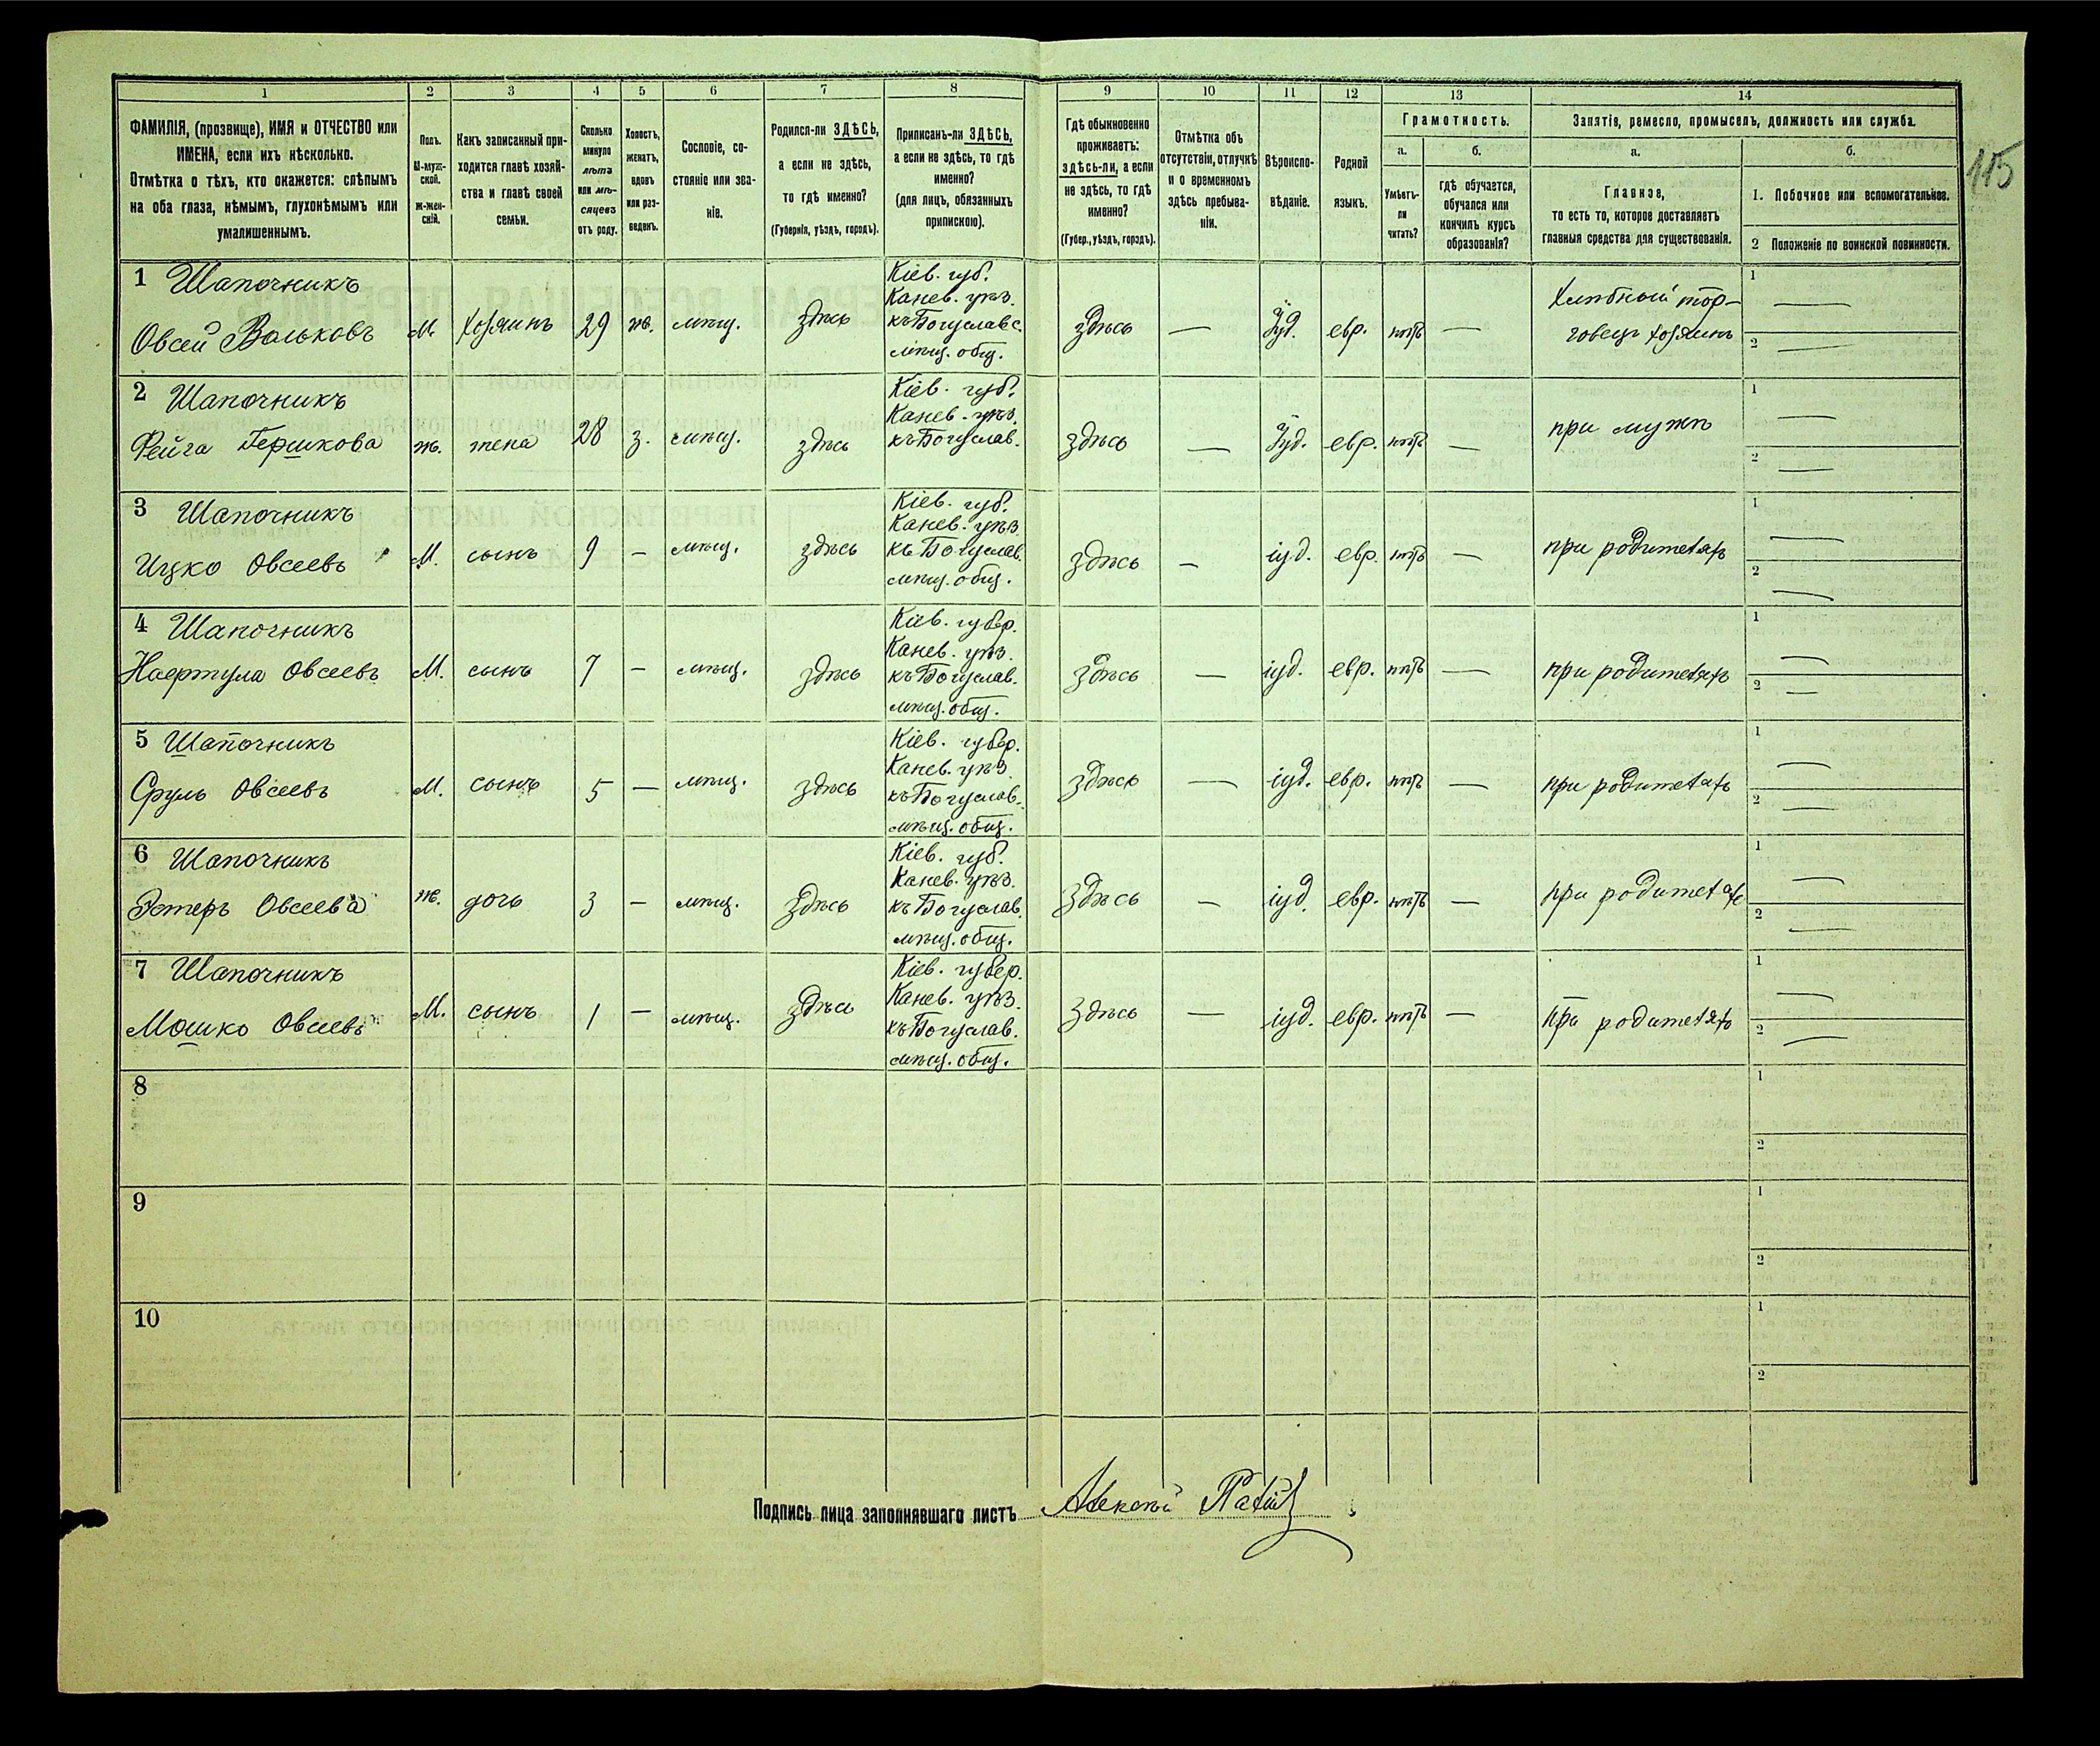 1
2
3
4
5
6
7
8
9
10
11
12
13
14
ФАМИЛІЯ, (прозвище), ИМЯ и ОТЧЕСТВО или
ИМЕНА, если ихъ нѣсколько.
Отмѣтка о тѣхъ, кто окажется: слѣпымъ
на оба глаза, нѣмымъ, глухонѣмымъ или
умалишеннымъ.
Полъ.
М-муж-
ской.
ж-жен-
скій.
Какъ записанный при-
ходится главѣ хозяй-
ства и главѣ своей
семьи.
Сколько
минуло
лѣтъ
или мѣ-
сяцевъ
отъ роду.
Холостъ,
женатъ,
вдовъ
или раз-
веденъ.
Сословіе, со-
стояніе или зва-
ніе.
Родился-ли ЗДѢСЬ,
а если не здѣсь,
то гдѣ именно?
(Губернія, уѣздъ, городъ).
Приписанъ-ли ЗДѢСЬ,
а если не здѣсь, то гдѣ
именно?
(для лицъ, обязанныхъ
припискою).
Гдѣ обыкновенно
проживаетъ:
здѣсь-ли, а если
не здѣсь, то гдѣ
именно?
(Губер., уѣздъ, городъ).
Отмѣтка объ
отсутствіи, отлучкѣ
и о временномъ
здѣсь пребыва-
ніи.
Вѣроиспо-
вѣданіе.
Родной
языкъ.
Грамотность.
а.
Умѣетъ-
ли
читать?
б.
гдѣ обучается,
обучался или
кончилъ курсъ
образованія?
Занятіе, ремесло, промыселъ, должность или служба.
а.
Главное,
то есть то, которое доставляетъ
главныя средства для существованія.
б.
1. Побочное или вспомогательное.
2 Положеніе по воинской повинности.
115
1 Шапочникъ
Овсей Вольковъ
М.
хозяинъ
29
ж.
мѣщ.
здѣсь
Кіев. губ.
Канев. уѣз.
къ Богуславс.
мѣщ. общ.
здѣсь
—
Іуд.
евр.
нѣтъ
—
Хлѣбный тор-
говецъ хозяинъ
1 —
2 —
2 Шапочникъ
Фейга Гершкова
ж.
жена
28
з.
мѣщ.
здѣсь
Кіев. губ.
Канев. уѣз.
къ Богуслав.
здѣсь
—
Іуд.
евр.
нѣтъ
—
при мужѣ
1 —
2 —
3 Шапочникъ
Ицко Овсеевъ
М.
сынъ
9
—
мѣщ.
здѣсь
Кіев. губ.
Канев. уѣз.
къ Богуслав.
мѣщ. общ.
здѣсь
—
іуд.
евр.
нѣтъ
—
при родителяхъ
1 —
2 —
4 Шапочникъ
Нафтула Овсеевъ
М.
сынъ
7
—
мѣщ.
здѣсь
Кіев. губер.
Канев. уѣз.
къ Богуслав.
мѣщ. общ.
здѣсь
—
іуд.
евр.
нѣтъ
—
при родителяхъ
1 —
2 —
5 Шапочникъ
Сруль Овсеевъ
М.
сынъ
5
—
мѣщ.
здѣсь
Кіев. губер.
Канев. уѣз.
къ Богуслав.
мѣщ. общ.
здѣсь
—
іуд.
евр.
нѣтъ
—
при родителяхъ
1 —
2 —
6 Шапочникъ
Эстеръ Овсеева
ж.
дочь
3
—
мѣщ.
здѣсь
Кіев. губ.
Канев. уѣз.
къ Богуслав.
мѣщ. общ.
здѣсь
—
іуд.
евр.
нѣтъ
—
при родителях
1 —
2 —
7 Шапочникъ
Мошко Овсеевъ
М.
сынъ
1
—
мѣщ.
здѣсь
Кіев. губер.
Канев. уѣз.
къ Богуслав.
мѣщ. общ.
здѣсь
—
іуд.
евр.
нѣтъ
—
при родителяхъ
1 —
2 —
8
1
2
9
1
2
10
1
2
Подпись лица заполнявшаго листъ Алексѣй